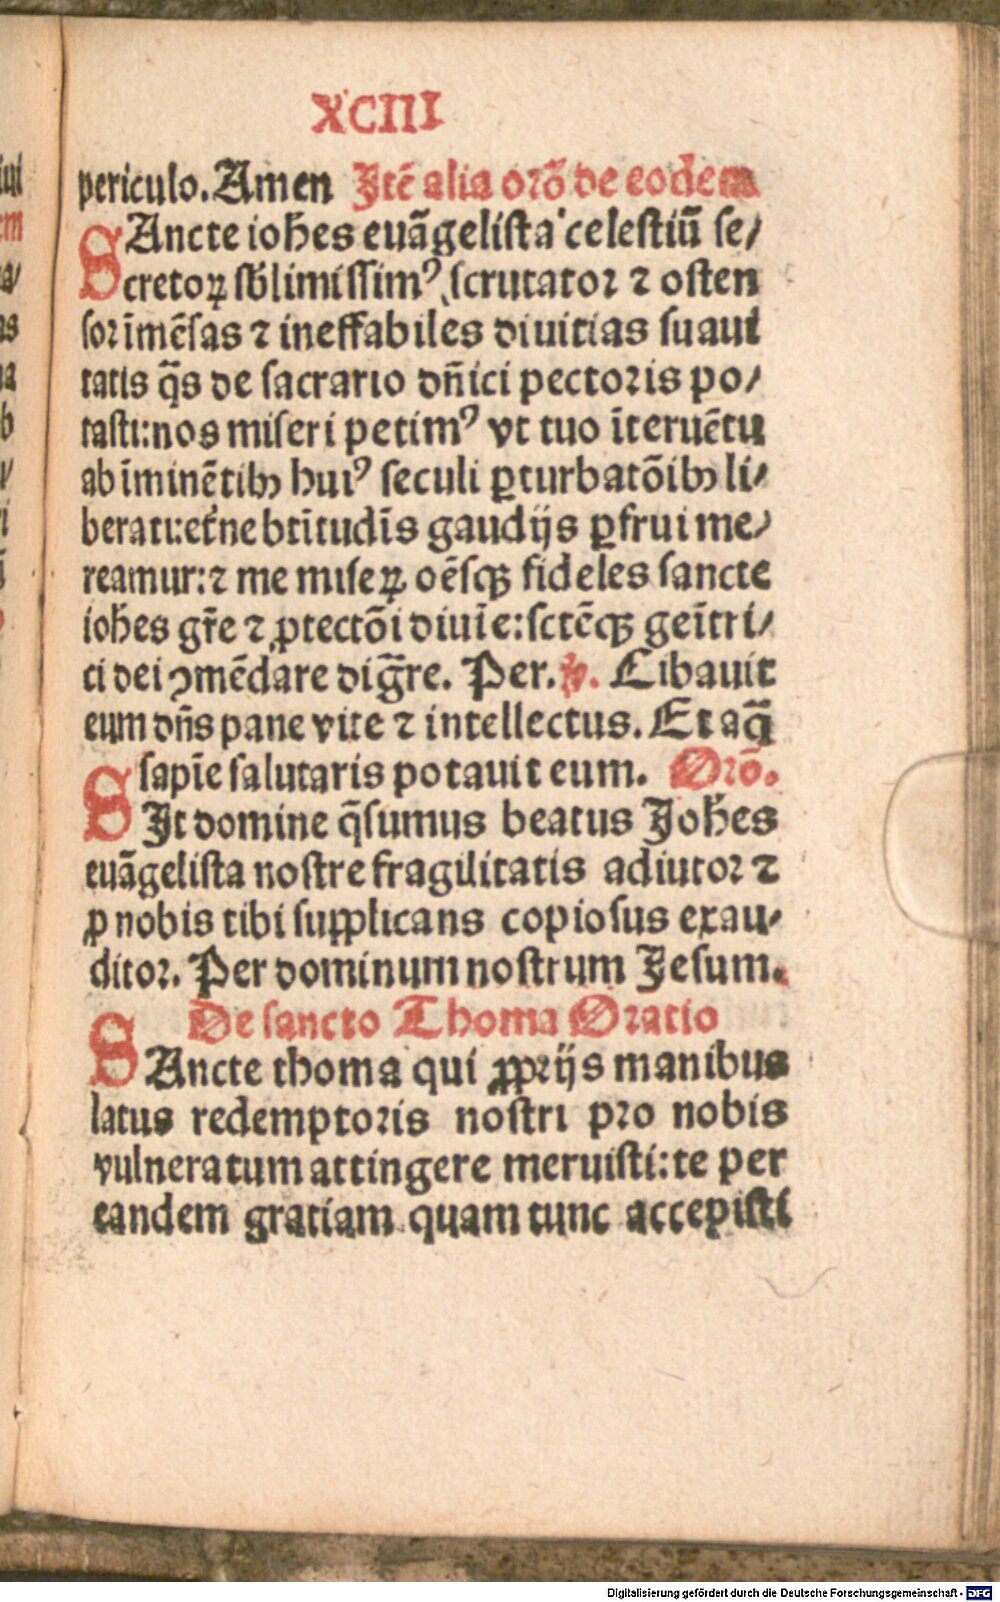 XCIII
periculo. Amen Itē alia orō de eodem
SAncte iohēs euāgelista celestiū se/
cretoꝝ sb̄limissimꝰ scrutator ⁊ osten
sor īmēsas ⁊ ineffabiles diuitias suaui
tatis q̄s de sacrario dn̄ici pectoris po/
tasti: nos miseri petimꝰ vt tuo īteruētu
ab īminētibꝫ huiꝰ seculi ꝑturbatōibꝫ li/
berati: et̄ne bt̄itudīs gaudijs ꝑfrui me/
reamur: ⁊ me miseꝝ oēsqꝫ fideles sancte
iohēs gr̄e ⁊ ꝓtectōi diuīe: sctēqꝫ geītri/
ci dei ꝯmēdare diḡre. Per. ꝟ. Cibauit
eum dn̄s pane vite ⁊ intellectus. Et aq̄
sapīe salutaris potauit eum. Orō.
SIt domine q̄sumus beatus Johēs
euāgelista nostre fragilitatis adiutor ⁊
ꝓ nobis tibi supplicans copiosus exau/
ditor. Per dominum nostrum Jesum.
De sancto Thoma Oratio
SAncte thoma qui ꝓprijs manibus
latus redemptoris nostri pro nobis
vulneratum attingere meruisti: te per
eandem gratiam quam tunc accepisti
Digitalisierung gefördert durch die Deutsche Forschungsgemeinschaft - DFG